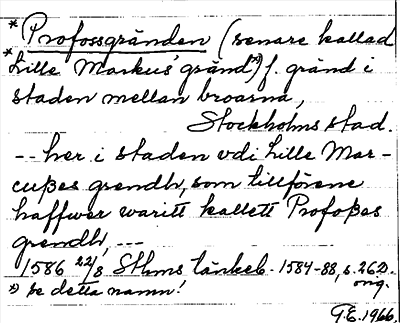 * Profossgränden (senare kallad
* Lille Markus' gränd*) f. gränd i
staden mellan broarna,
Stockholms stad.
-- her i staden vdi Lille Mar-
cußes grendh, som tillförene
haffwer waritt kallett Profoßes
grendh, ---
1586 22/8 Sthms tänkeb. 1584-88, s. 262.
orig.
*) se detta namn!
G.E. 1966.